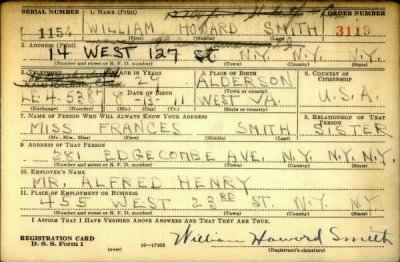 SERIAL NUMBER 1. NAME (Print) ORDER NUMBER
1154 WILLIAM HOWARD SMITH 3119
(First) (Middle) (Last)
2. ADDRESS (Print)
14 WEST 127 ST. N.Y. N.Y. N.Y.
(Number and street or R. F. D. number) (Town) (County) (State)
3. TELEPHONE 4. AGE IN YEARS 5. PLACE OF BIRTH 6. COUNTRY OF CITIZENSHIP
ALDERSON
(Town or county)
DATE OF BIRTH WEST VA. U.S.A.
(Exchange) (No.) (Mo.) (Day) (Yr.) (State or country)
7. NAME OF PERSON WHO WILL ALWAYS KNOW YOUR ADDRESS 8. RELATIONSHIP OF THAT PERSON
MISS FRANCES SMITH SISTER
(Mr., Mrs., Miss) (First) (Middle) (Last)
9. ADDRESS OF THAT PERSON
EDGECOMBE AVE. N.Y. N.Y. N.Y.
(Number and street or R. F. D. number) (Town) (County) (State)
10. EMPLOYER'S NAME
MR. ALFRED HENRY
11. PLACE OF EMPLOYMENT OR BUSINESS
455 WEST 23RD ST. N.Y. N.Y.
(Number and street or R. F. D. number) (Town) (County) (State)
I AFFIRM THAT I HAVE VERIFIED ABOVE ANSWERS AND THAT THEY ARE TRUE.
REGISTRATION CARD
D. S. S. Form 1 (over) 16—17105 William Howard Smith
(Registrant's signature)